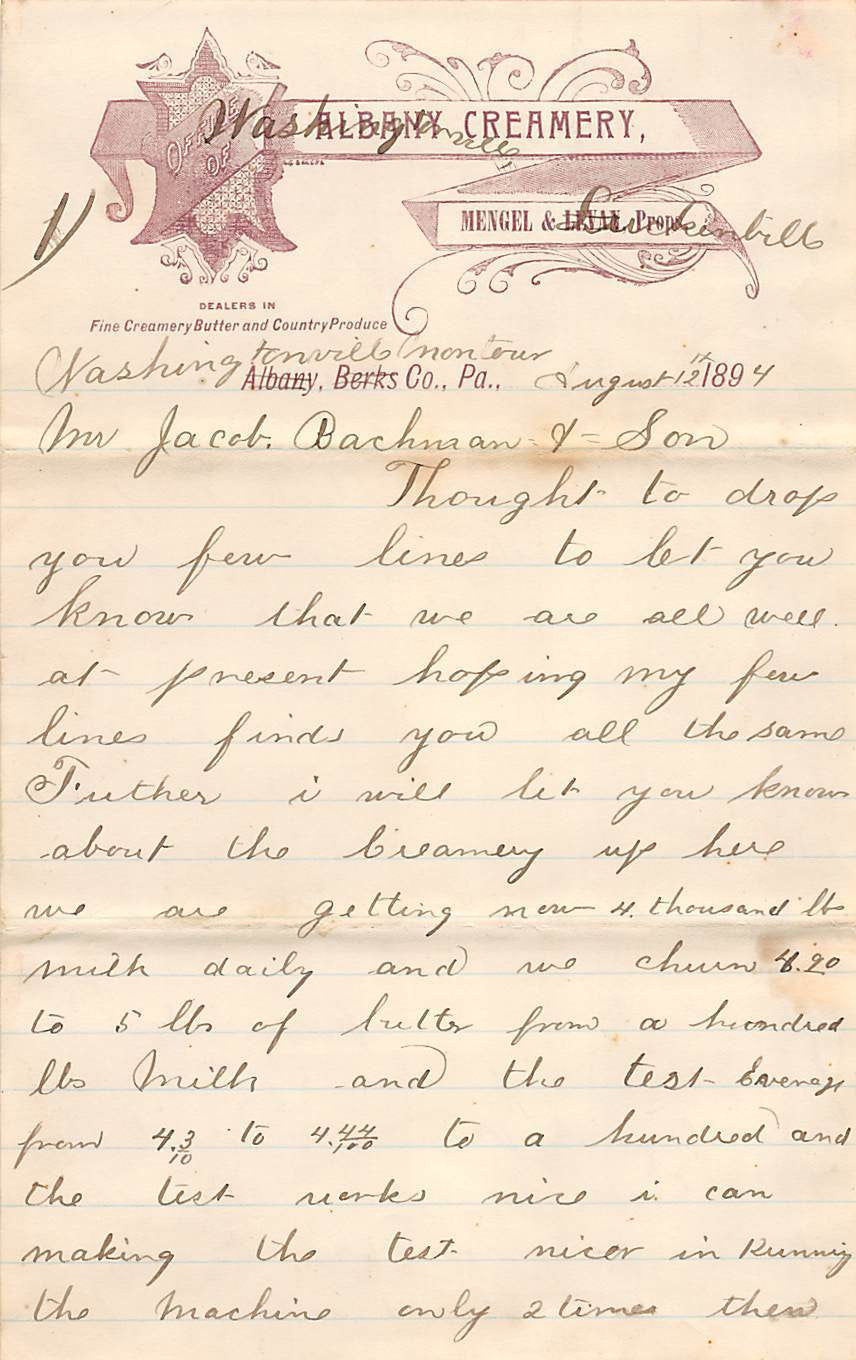 OFFICE OF
Washingtonville
ALBANY CREAMERY,
1)
MENGEL & LEVAN, Props
DEALERS IN
Fine Creamery Butter and Country Produce
Washingtonvill Montour
Albany, Berks Co., Pa., August 12th 1894
Mr Jacob. Bachman & Son
Thought to drop
you few lines to let you
know that we are all well.
at present hoping my few
lines finds you all the same
Futher i will let you know
about the Creamery up here
we are getting now 4. thousand lbs
milk daily and we churn 4.90
to 5 lbs of butter from a hundred
lbs Milk and the test Everage
from 4.3/10 to 4.44/100 to a hundred and
the test works nice i can
making the test nicer in Running
the Machine only 2 times then